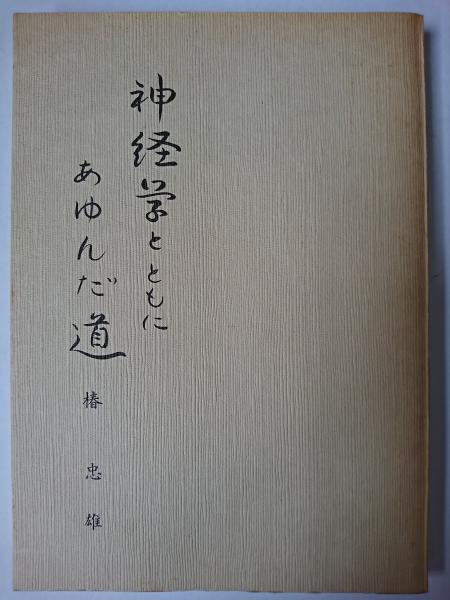 神経学とともに
あゆんだ道
椿忠雄